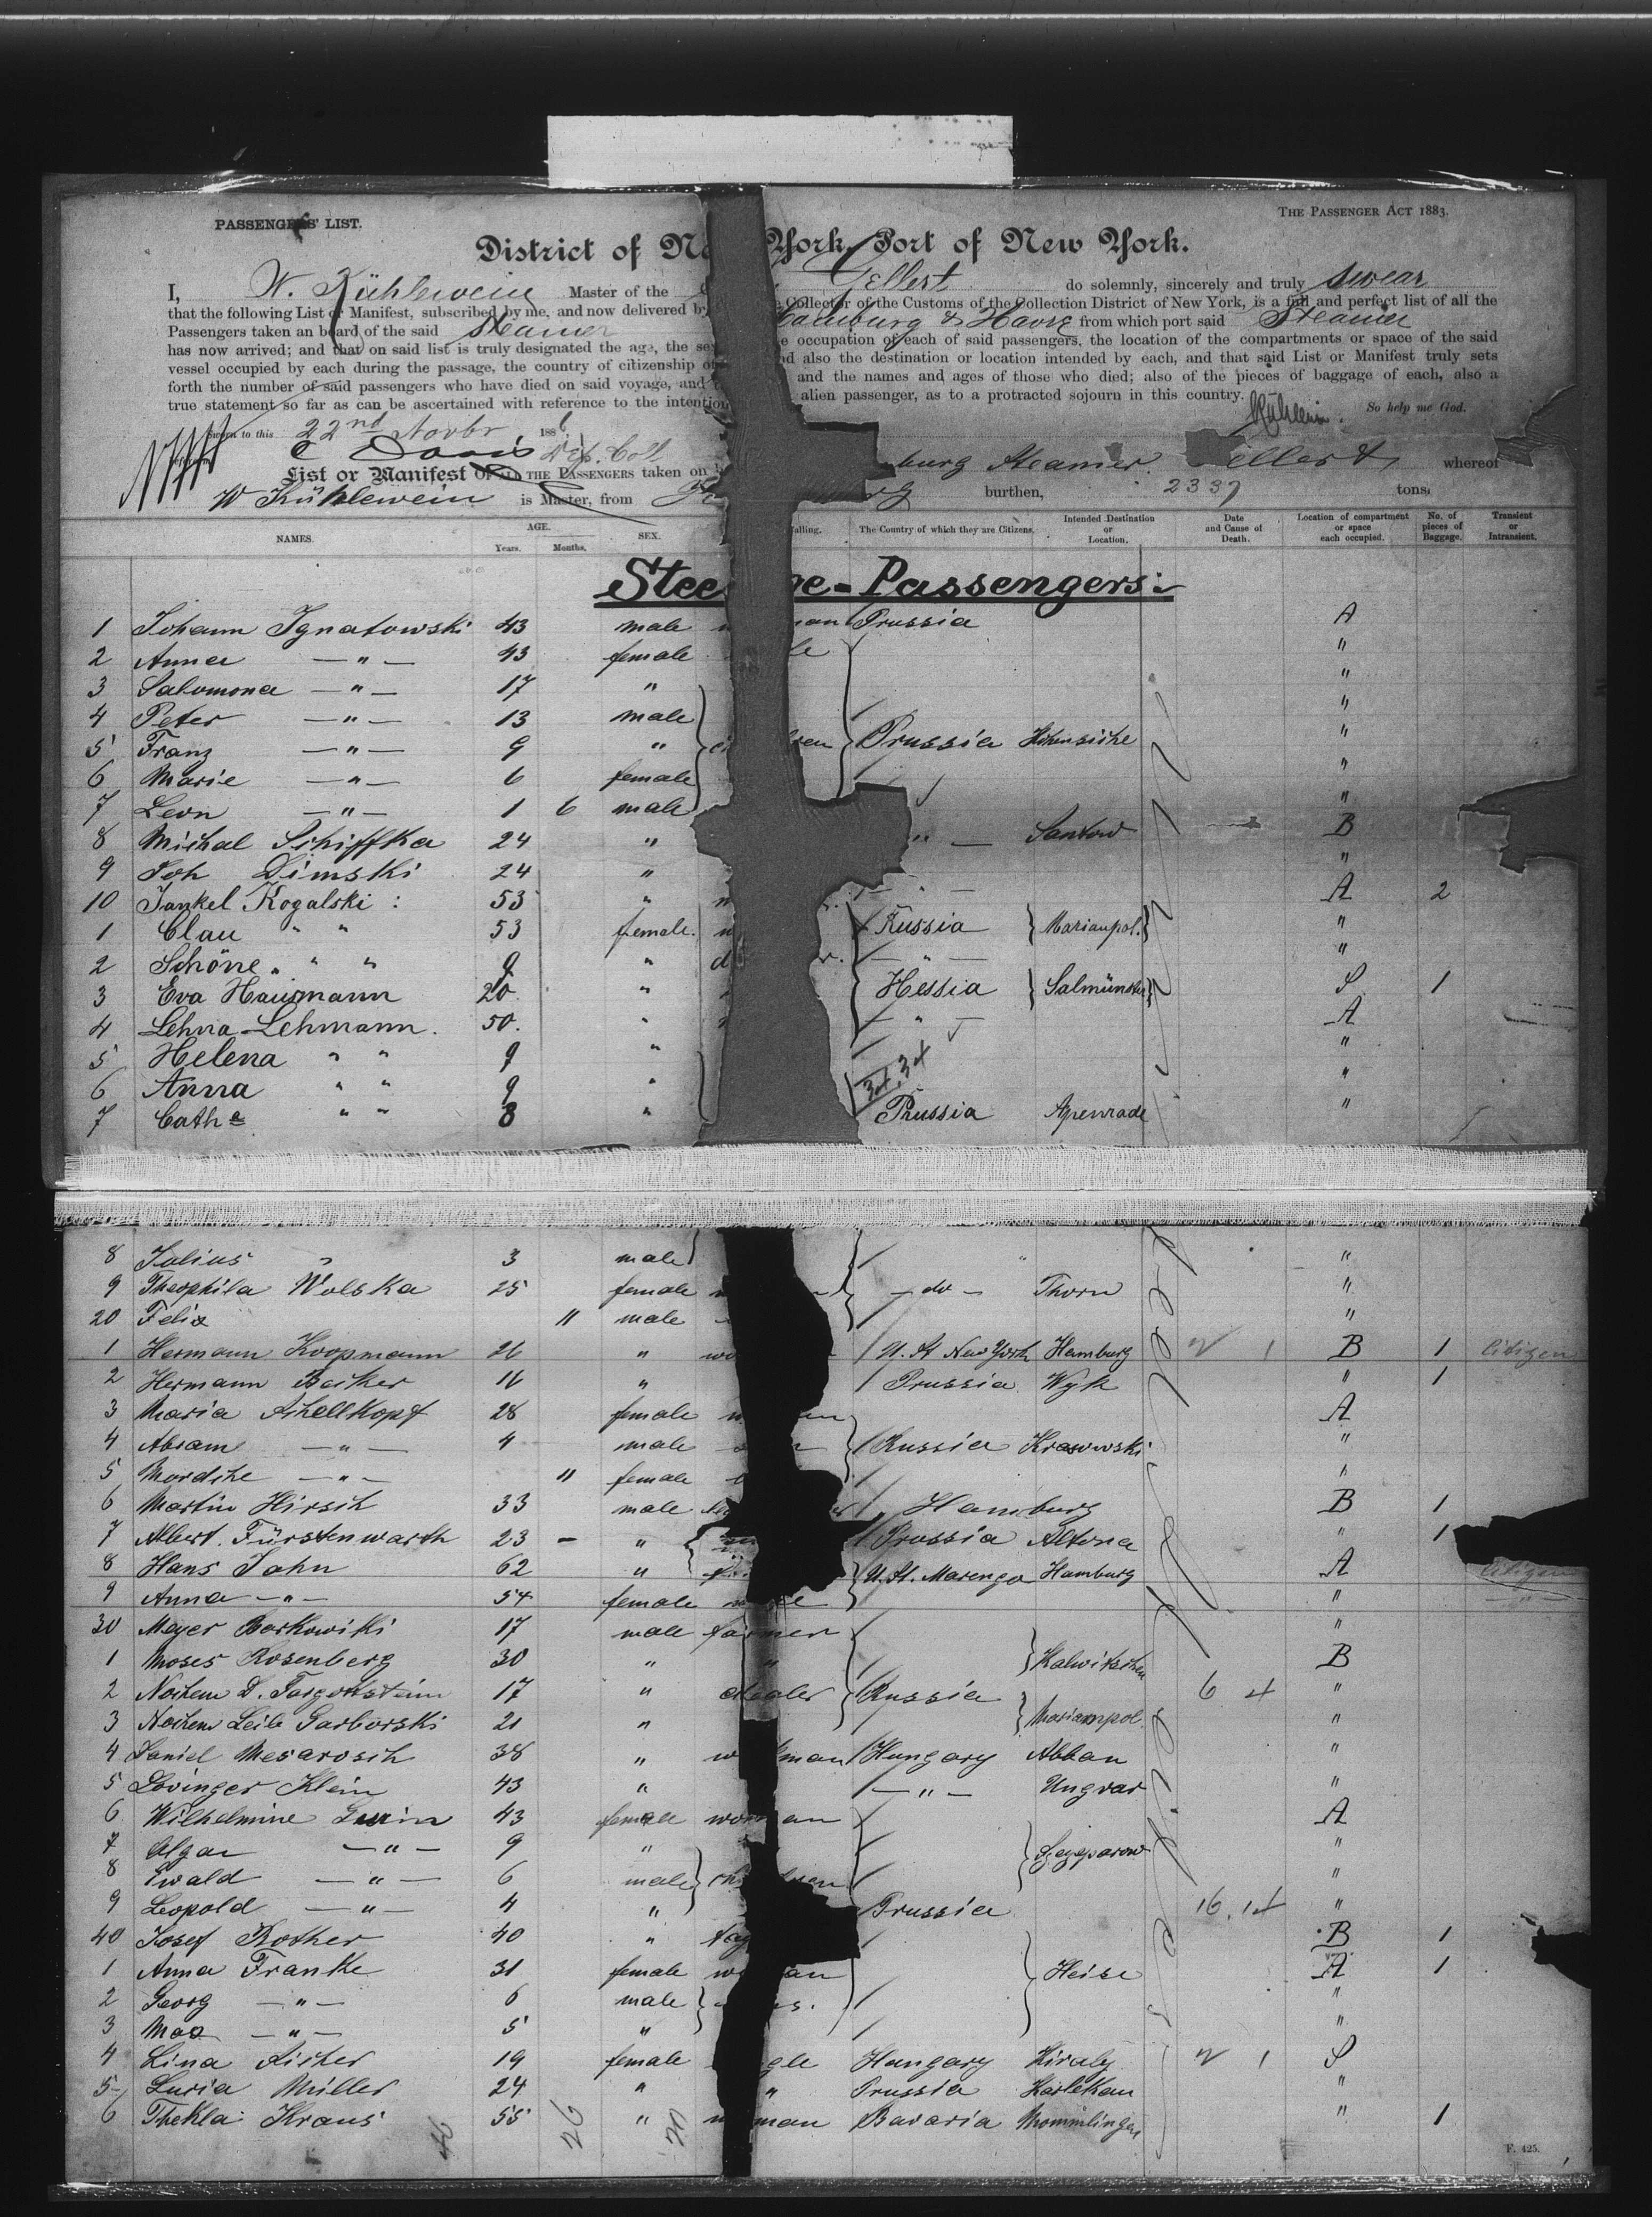 PASSENGERS' LIST.
THE PASSENGER ACT 1883.
District of Ne York, Port of New York.
I, W. Kühlewein Master of the Gellert do solemnly, sincerely and truly swear
that the following List or Manifest, subscribed by me, and now delivered by Collector of the Customs of the Collection District of New York, is a full and perfect list of all the
Passengers taken an board of the said Steamer Hamburg & Havre from which port said Steamer
has now arrived; and that on said list is truly designated the age, the se occupation of each of said passengers, the location of the compartments or space of the said
vessel occupied by each during the passage, the country of citizenship of nd also the destination or location intended by each, and that said List or Manifest truly sets
forth the number of said passengers who have died on said voyage, and and the names and ages of those who died; also of the pieces of baggage of each, also a
true statement so far as can be ascertained with reference to the intention alien passenger, as to a protracted sojourn in this country.
Kühlewein. So help me God.
Sworn to this 22nd Novbr 1886
Dep. Coll
List or Manifest OF ALL THE PASSENGERS taken on burg Steamer Gellert whereof
W Kühlewein is Master, from burthen, 2337 tons.
NAMES. AGE. Years. Months. SEX. alling. The Country of which they are Citizens. Intended Destination or Location. Date and Cause of Death. Location of compartment or space each occupied. No. of pieces of Baggage. Transient or Intransient.
Stee ge-Passengers:
1 Johann Ignatowski 43 male man Prussia A
2 Anna —"— 43 female "
3 Salomona —"— 17 " "
4 Peter —"— 13 male "
5 Franz —"— 9 " Prussia Hohensiche "
6 Marie —"— 6 female "
7 Leon —"— 1 6 male "
8 Michal Schiffka 24 " " — Santow B
9 Joh Dimski 24 " "
10 Jankel Kogalski : 53 " A 2
1 Clau " " 53 female. Russia Marianpol. "
2 Schöne " " " 9 " — " — "
3 Eva Hausmann 20. " Hessia Salmünster S 1
4 Lehna Lehmann. 50. " — " — A
5 Helena " " 9 " "
6 Anna " " 9 " "
7 Cathe " " 8 " Prussia Apenrade "
8 Julius " 3 male " "
9 Theophila Wolska 25 female — do — Thorn "
20 Felix 11 male "
1 Hermann Koopmann 26 " U. St New York Hamburg 2 1 B 1 Citizen
2 Hermann Becker 16 " Prussia Wyk " 1
3 Maria Schellkopf 28 female A
4 Abram —"— 4 male Russia Krasowski "
5 Mordche —"— 11 female "
6 Martin Hirsch 33 male Hamburg B 1
7 Albert. Fürstenwarth 23 — " Prussia Altona " 1
8 Hans Jahn 62 " U. St. Marengo Hamburg A Citizen
9 Anna —"— 54 female "
30 Meyer Borkowski 17 male farmer "
1 Moses Rosenberg 30 " " Kalwitschen B
2 Nochem D. 17 " dealer Russia 6 4 "
3 Nochem Leib Garborski 21 " Mariampol. "
4 Daniel Mesarosch 38 " w man Hungary Abban "
5 Lovinger Klein 43 " — " — Ungvar "
6 Wilhelmine 43 female woman A
7 Olga —"— 9 " "
8 Ewald —"— 6 male "
9 Leopold —"— 4 " Prussia 16. 14 "
40 Josef Rother 40 " B 1
1 Anna Franke 31 female woman Heise A 1
2 Georg —"— 6 male "
3 Max —"— 5 " "
4 Lina Fischer 19 female gle Hungary Kiraly 2 1 S
5 Luria Müller 24 " " Prussia Karlekau "
6 Thekla Kraus 55 " woman Bavaria Mommlingen " 1
46 26 20
F. 425.